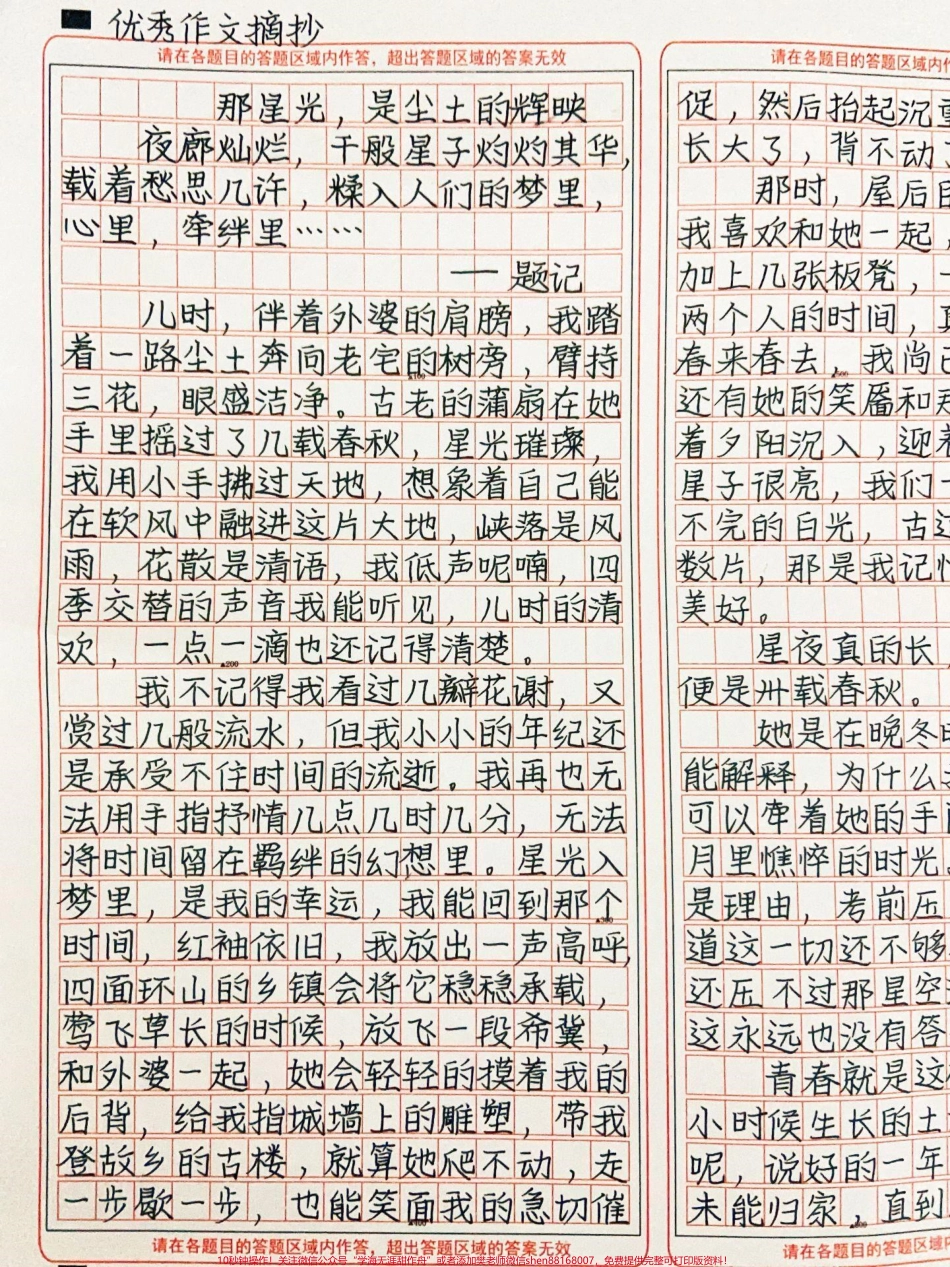 优秀作文摘抄
请在各题目的答题区域内作答，超出答题区域的答案无效
那星光，是尘土的辉映
夜廊灿烂，千般星子灼灼其华，
载着愁思几许，糅入人们的梦里，
心里，牵绊里……
——题记
儿时，伴着外婆的肩膀，我踏
着一路尘土奔向老宅的树旁，臂持
三花，眼盛洁净。古老的蒲扇在她
手里摇过了几载春秋，星光璀璨，
我用小手拂过天地，想象着自己能
在软风中融进这片大地，峡落是风
雨，花散是清语，我低声呢喃，四
季交替的声音我能听见，儿时的清
欢，一点一滴也还记得清楚。
▲200
我不记得我看过几瓣花谢，又
赏过几般流水，但我小小的年纪还
是承受不住时间的流逝。我再也无
法用手指抒情几点几时几分，无法
将时间留在羁绊的幻想里。星光入
梦里，是我的幸运，我能回到那个
时间，红袖依旧，我放出一声高呼，
四面环山的乡镇会将它稳稳承载，
莺飞草长的时候，放飞一段希冀，
和外婆一起，她会轻轻的摸着我的
后背，给我指城墙上的雕塑，带我
登故乡的古楼，就算她爬不动，走
一步歇一步，也能笑面我的急切催
请在各题目的答题区域内作答，超出答题区域的答案无效
请在各题目的答题区域内
促，然后抬起沉
长大了，背不动
那时，屋后
我喜欢和她一起，
加上几张板凳，
两个人的时间，
春来春去，我尚
还有她的笑靥和
着夕阳沉入，迎
星子很亮，我们
不完的白光，古
数片，那是我记
美好。
星夜真的长
便是卅载春秋。
她是在晚冬
能解释，为什么
可以牵着她的手
月里憔悴的时光
是理由，考前压
道这一切还不够
还压不过那星空
这永远也没有答
青春就是这
小时候生长的土
呢，说好的一年
未能归家，直到
请在各题目的答题区域内
10秒钟操作！关注微信公众号“学海无涯甜作舟”或者添加樊老师微信shen88168007，免费提供完整可打印版资料！